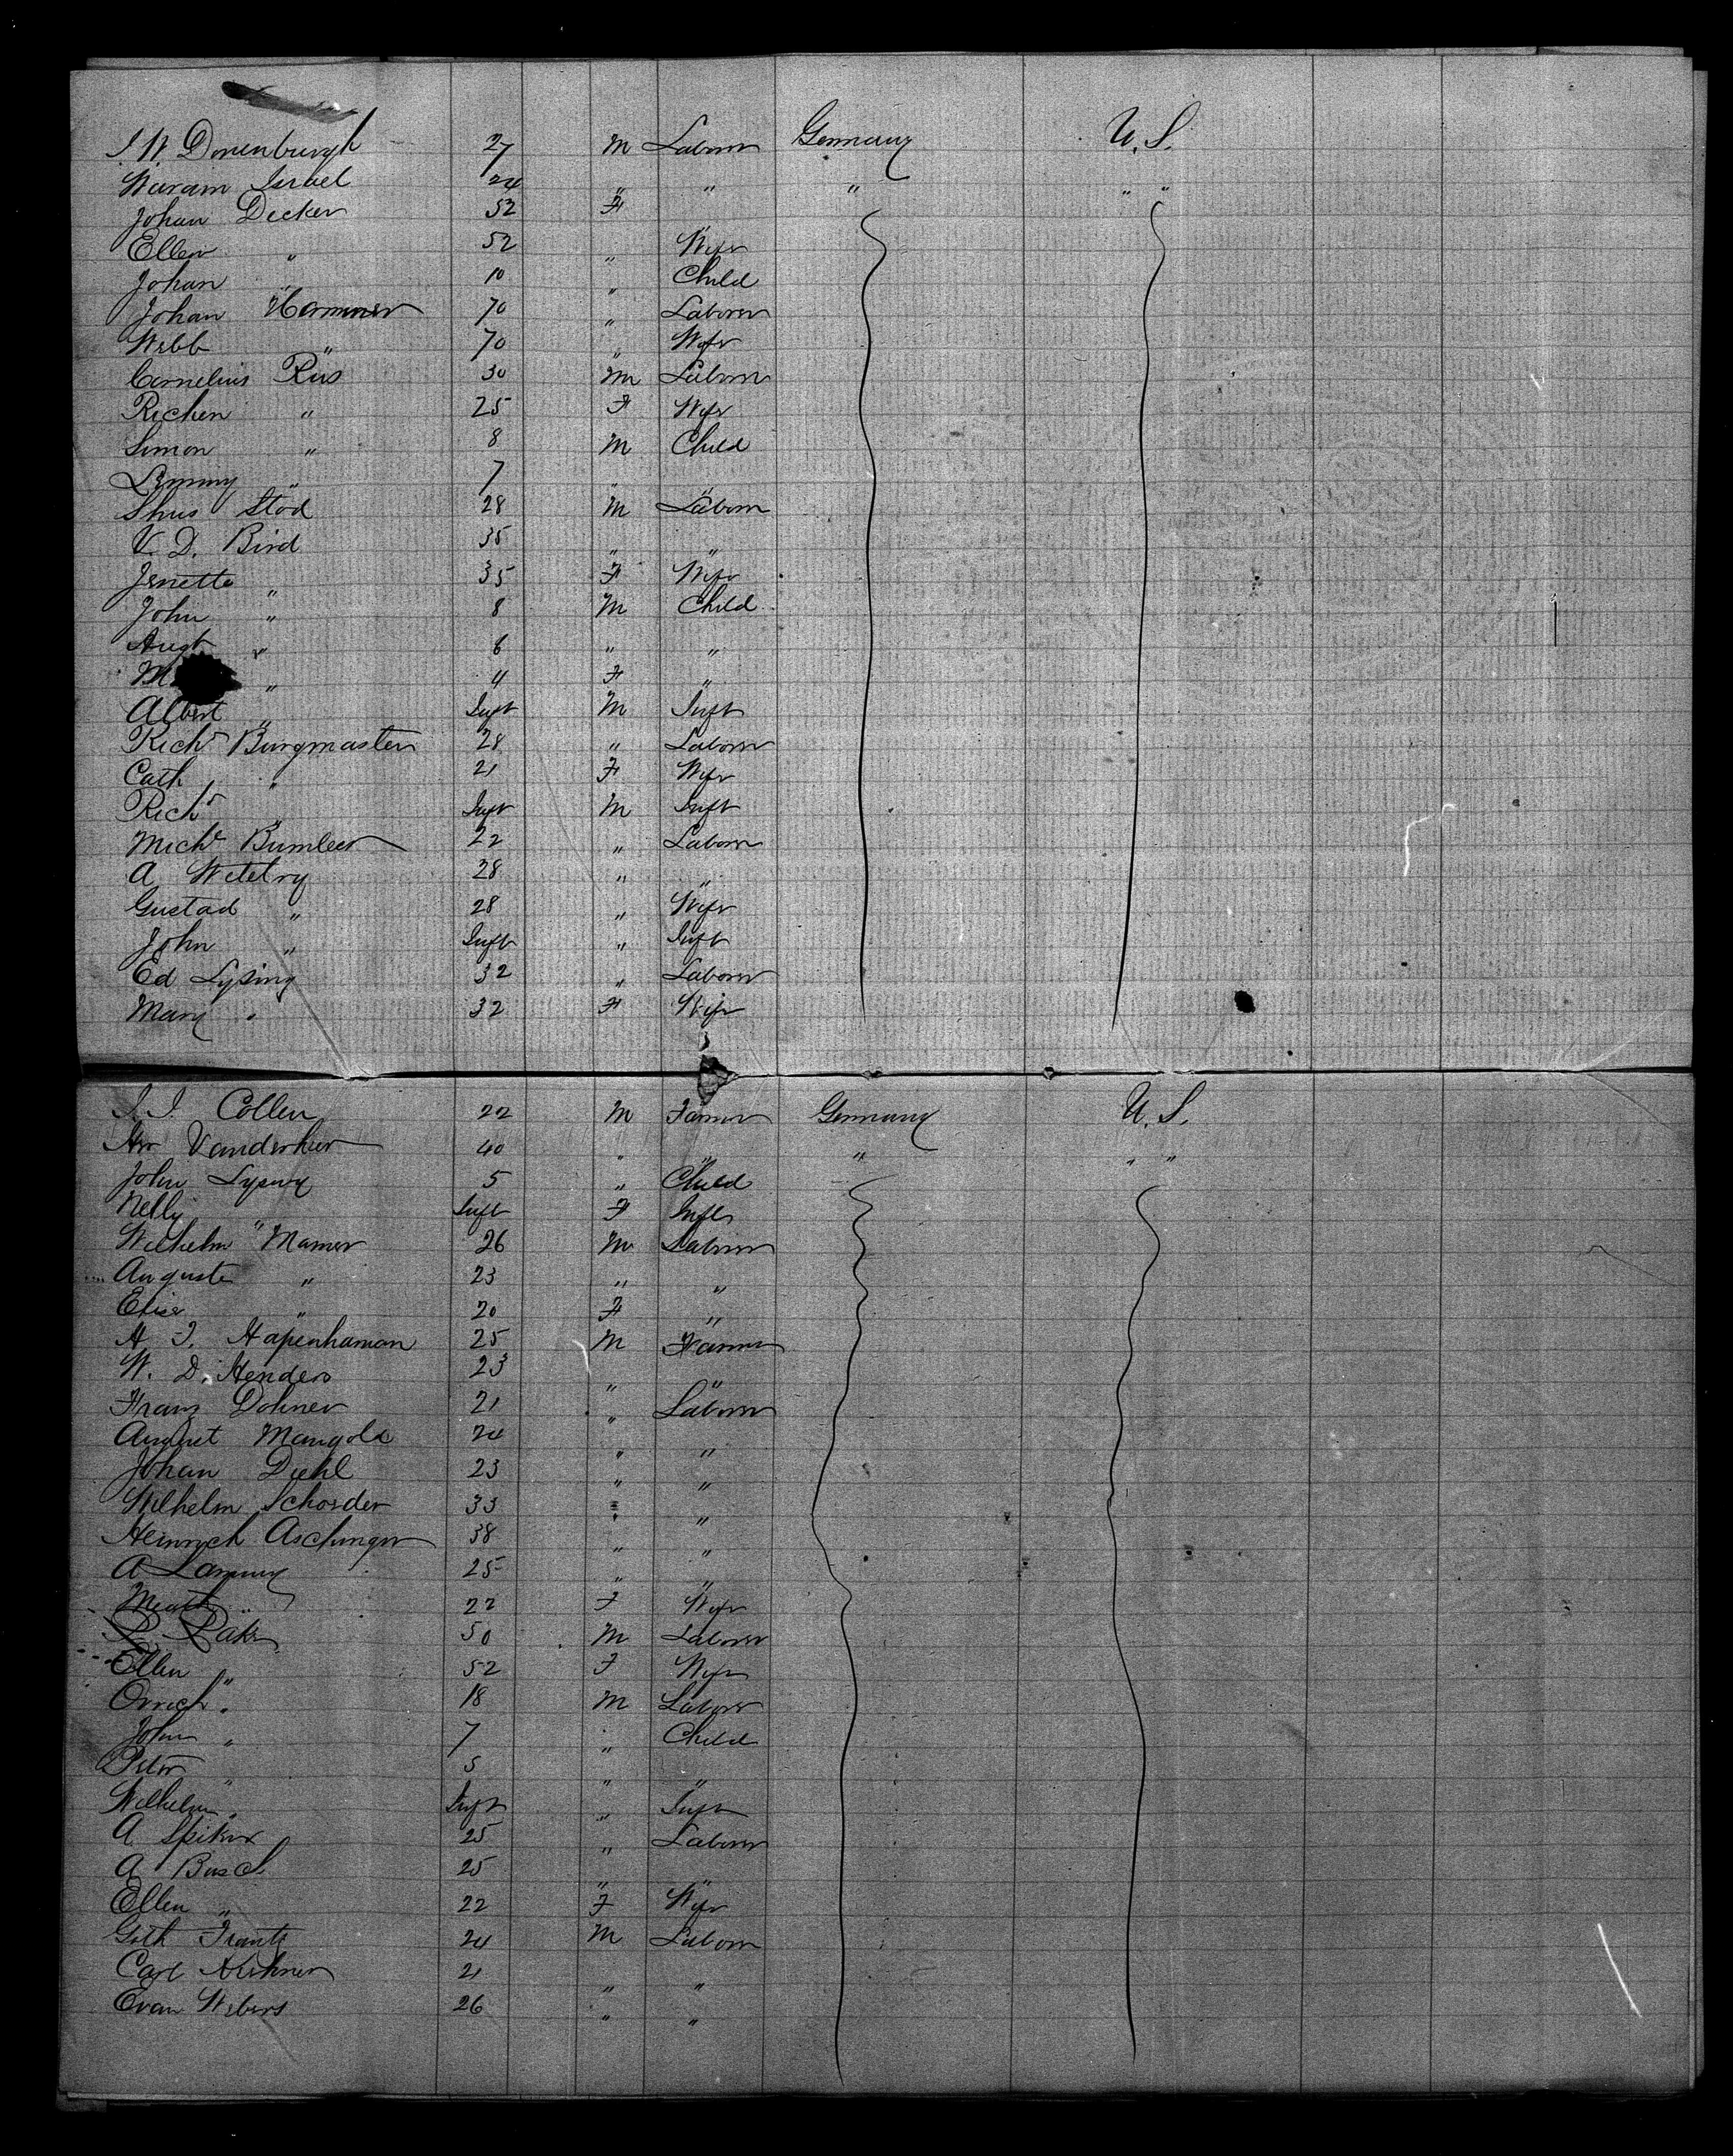 J. W. Donenburgh 27 M Laborer Germany U.S.
Waram Israel 24 " " " " "
Johan Decker 52 F
Ellen " 52 " Wife
Johan " 10 " Child
Johan Hammer 70 " Laborer
Webb " 70 " Wife
Cornelius Rus 30 M Laborer
Richen " 25 F Wife
Simon " 8 M Child
Lemmy " 7 " "
Shus Stod 28 M Laborer
V. D. Bird 35 " "
Jenette " 35 F Wife
John " 8 M Child
Augt " 6 " "
M " 4 F "
Albert " Inft M Inft
Richd Burgmaster 28 " Laborer
Cath " 21 F Wife
Richd " Inft M Inft
Michl Bumleer 22 " Laborer
A 28 " "
Gustad " 28 " Wife
John " Inft " Inft
Ed Lysing 32 " Laborer
Mary " 32 F Wife
J. J. Collen 22 M Farmer Germany U.S.
Vanderhur 40 " " " " "
John Lysing 5 " Child
Nelly " Inft F Inft
Wilhelm Mamer 26 M Laborer
Auguste " 23 " "
Elise " 20 F "
H. J. Hapenhaman 25 M Farmer
W. D. Henders 23 " "
Franz Dohner 21 " Laborer
August Mangold 24 " "
Johan Diehl 23 " "
Wilhelm Schorder 33 " "
Heinrich Aschinger 38 " "
A Lammy 25 " "
" 22 F Wife
P. Paker 50 M Laborer
Ellen " 52 F Wife
Orrich " 18 M Laborer
John " 7 " Child
Peter " 5 " "
Wilhelm " Inft " Inft
A Spiker 25 " Laborer
A Busch 25 " "
Ellen " 22 F Wife
Goth Frantz 24 M Laborer
Carl Kirhner 21 " "
Evan Webers 26 " "